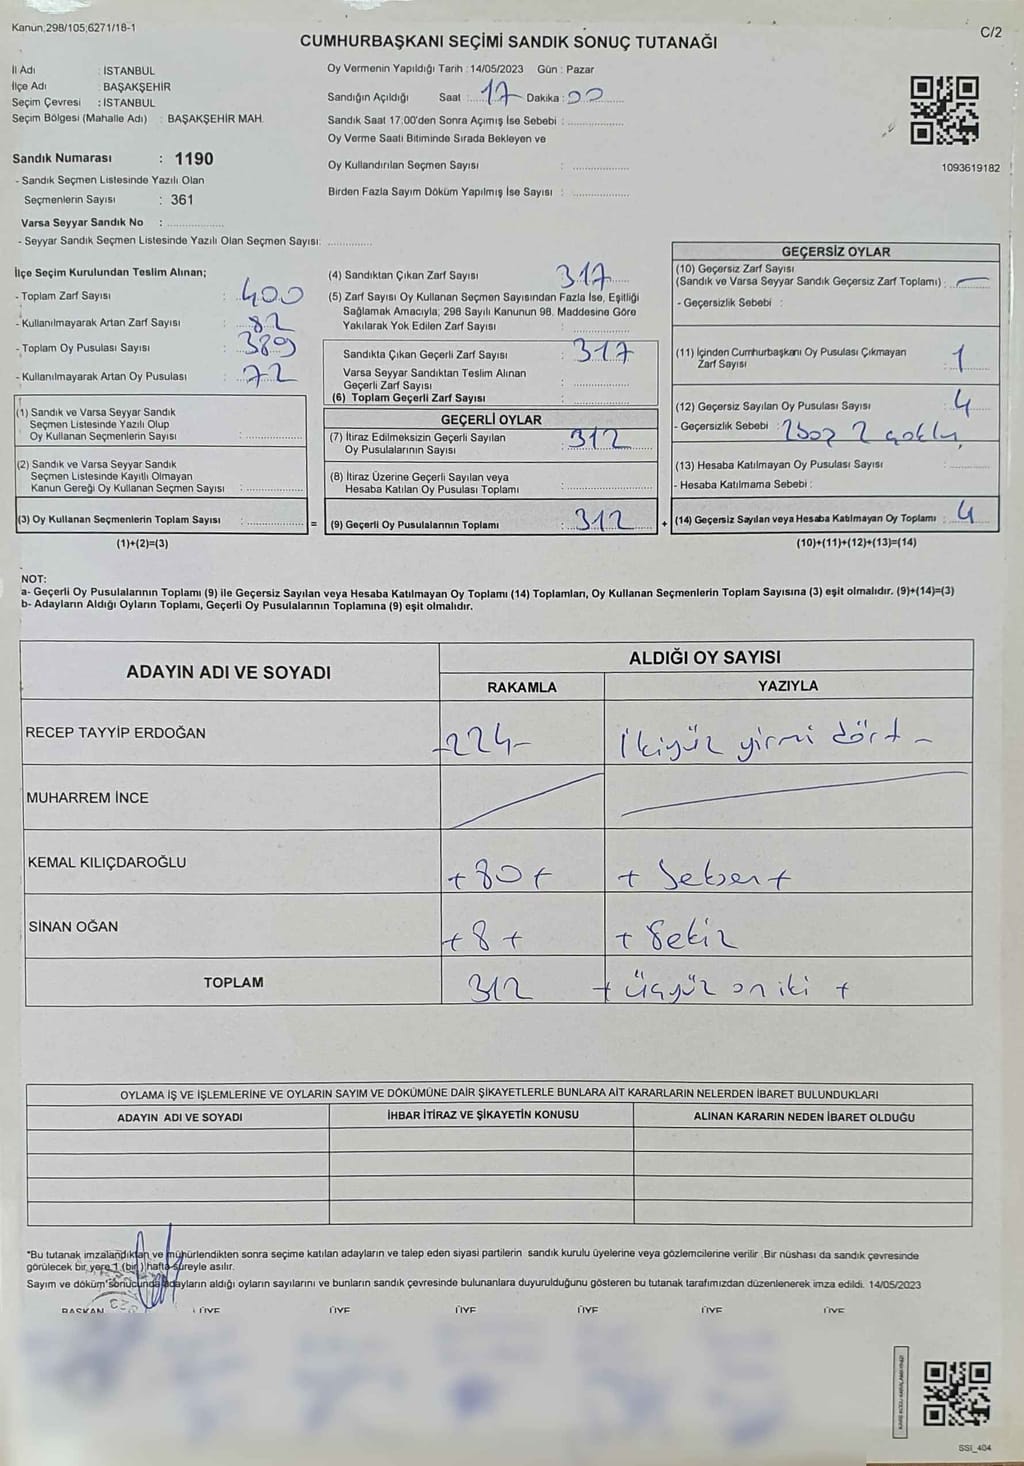 Kanun,298/105,6271/18-1
C/2
CUMHURBAŞKANI SEÇİMİ SANDIK SONUÇ TUTANAĞI
İl Adı : İSTANBUL
İlçe Adı : BAŞAKŞEHİR
Seçim Çevresi : İSTANBUL
Seçim Bölgesi (Mahalle Adı) : BAŞAKŞEHİR MAH.
Sandık Numarası : 1190
- Sandık Seçmen Listesinde Yazılı Olan
Seçmenlerin Sayısı : 361
Varsa Seyyar Sandık No :
- Seyyar Sandık Seçmen Listesinde Yazılı Olan Seçmen Sayısı:
Oy Vermenin Yapıldığı Tarih : 14/05/2023 Gün : Pazar
Sandığın Açıldığı Saat : 17 Dakika : 00
Sandık Saat 17:00'den Sonra Açımış İse Sebebi :
Oy Verme Saati Bitiminde Sırada Bekleyen ve
Oy Kullandırılan Seçmen Sayısı :
Birden Fazla Sayım Döküm Yapılmış İse Sayısı :
1093619182
İlçe Seçim Kurulundan Teslim Alınan;
- Toplam Zarf Sayısı : 400
- Kullanılmayarak Artan Zarf Sayısı : 82
- Toplam Oy Pusulası Sayısı : 389
- Kullanılmayarak Artan Oy Pusulası : 72
(1) Sandık ve Varsa Seyyar Sandık
Seçmen Listesinde Yazılı Olup
Oy Kullanan Seçmenlerin Sayısı :
(2) Sandık ve Varsa Seyyar Sandık
Seçmen Listesinde Kayıtlı Olmayan
Kanun Gereği Oy Kullanan Seçmen Sayısı :
(3) Oy Kullanan Seçmenlerin Toplam Sayısı :
(1)+(2)=(3)
=
(4) Sandıktan Çıkan Zarf Sayısı : 317
(5) Zarf Sayısı Oy Kullanan Seçmen Sayısından Fazla İse, Eşitliği
Sağlamak Amacıyla; 298 Sayılı Kanunun 98. Maddesine Göre
Yakılarak Yok Edilen Zarf Sayısı :
Sandıkta Çıkan Geçerli Zarf Sayısı : 317
Varsa Seyyar Sandıktan Teslim Alınan
Geçerli Zarf Sayısı :
(6) Toplam Geçerli Zarf Sayısı :
GEÇERLİ OYLAR
(7) İtiraz Edilmeksizin Geçerli Sayılan
Oy Pusulalarının Sayısı : 312
(8) İtiraz Üzerine Geçerli Sayılan veya
Hesaba Katılan Oy Pusulası Toplamı :
(9) Geçerli Oy Pusulalarının Toplamı : 312
+
GEÇERSİZ OYLAR
(10) Geçersiz Zarf Sayısı
(Sandık ve Varsa Seyyar Sandık Geçersiz Zarf Toplamı) : —
- Geçersizlik Sebebi :
(11) İçinden Cumhurbaşkanı Oy Pusulası Çıkmayan
Zarf Sayısı : 1
(12) Geçersiz Sayılan Oy Pusulası Sayısı : 4
- Geçersizlik Sebebi : 2 2
(13) Hesaba Katılmayan Oy Pusulası Sayısı :
- Hesaba Katılmama Sebebi :
(14) Geçersiz Sayılan veya Hesaba Katılmayan Oy Toplamı : 4
(10)+(11)+(12)+(13)=(14)
NOT:
a- Geçerli Oy Pusulalarının Toplamı (9) ile Geçersiz Sayılan veya Hesaba Katılmayan Oy Toplamı (14) Toplamları, Oy Kullanan Seçmenlerin Toplam Sayısına (3) eşit olmalıdır. (9)+(14)=(3)
b- Adayların Aldığı Oyların Toplamı, Geçerli Oy Pusulalarının Toplamına (9) eşit olmalıdır.
ADAYIN ADI VE SOYADI
ALDIĞI OY SAYISI
RAKAMLA YAZIYLA
RECEP TAYYİP ERDOĞAN -224- ikiyüz yirmi dört -
MUHARREM İNCE
KEMAL KILIÇDAROĞLU +80+ + Seksen +
SİNAN OĞAN +8+ + Sekiz
TOPLAM 312 + üçyüz on iki +
OYLAMA İŞ VE İŞLEMLERİNE VE OYLARIN SAYIM VE DÖKÜMÜNE DAİR ŞİKAYETLERLE BUNLARA AİT KARARLARIN NELERDEN İBARET BULUNDUKLARI
ADAYIN ADI VE SOYADI İHBAR İTİRAZ VE ŞİKAYETİN KONUSU ALINAN KARARIN NEDEN İBARET OLDUĞU
*Bu tutanak imzalandıktan ve mühürlendikten sonra seçime katılan adayların ve talep eden siyasi partilerin sandık kurulu üyelerine veya gözlemcilerine verilir .Bir nüshası da sandık çevresinde
görülecek bir yere 1 (bir ) hafta süreyle asılır.
Sayım ve döküm sonucunda adayların aldığı oyların sayılarını ve bunların sandık çevresinde bulunanlara duyurulduğunu gösteren bu tutanak tarafımızdan düzenlenerek imza edildi. 14/05/2023
BAŞKAN ÜYE ÜYE ÜYE ÜYE ÜYE ÜYE
SSI_404